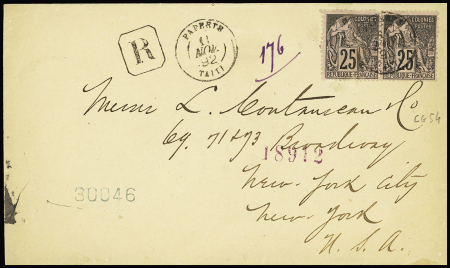 R
PAPEETE
11
NOV.
92
TAITI
176
COLONIES
POSTES
25
REPUBLIQUE FRANÇAISE
COLONIES
POSTES
25
REPUBLIQUE FRANÇAISE
Messrs L. & Co
CG54
69, 71 & 73 Broadway
18912
New-York City
30046
New-York
U.S.A.